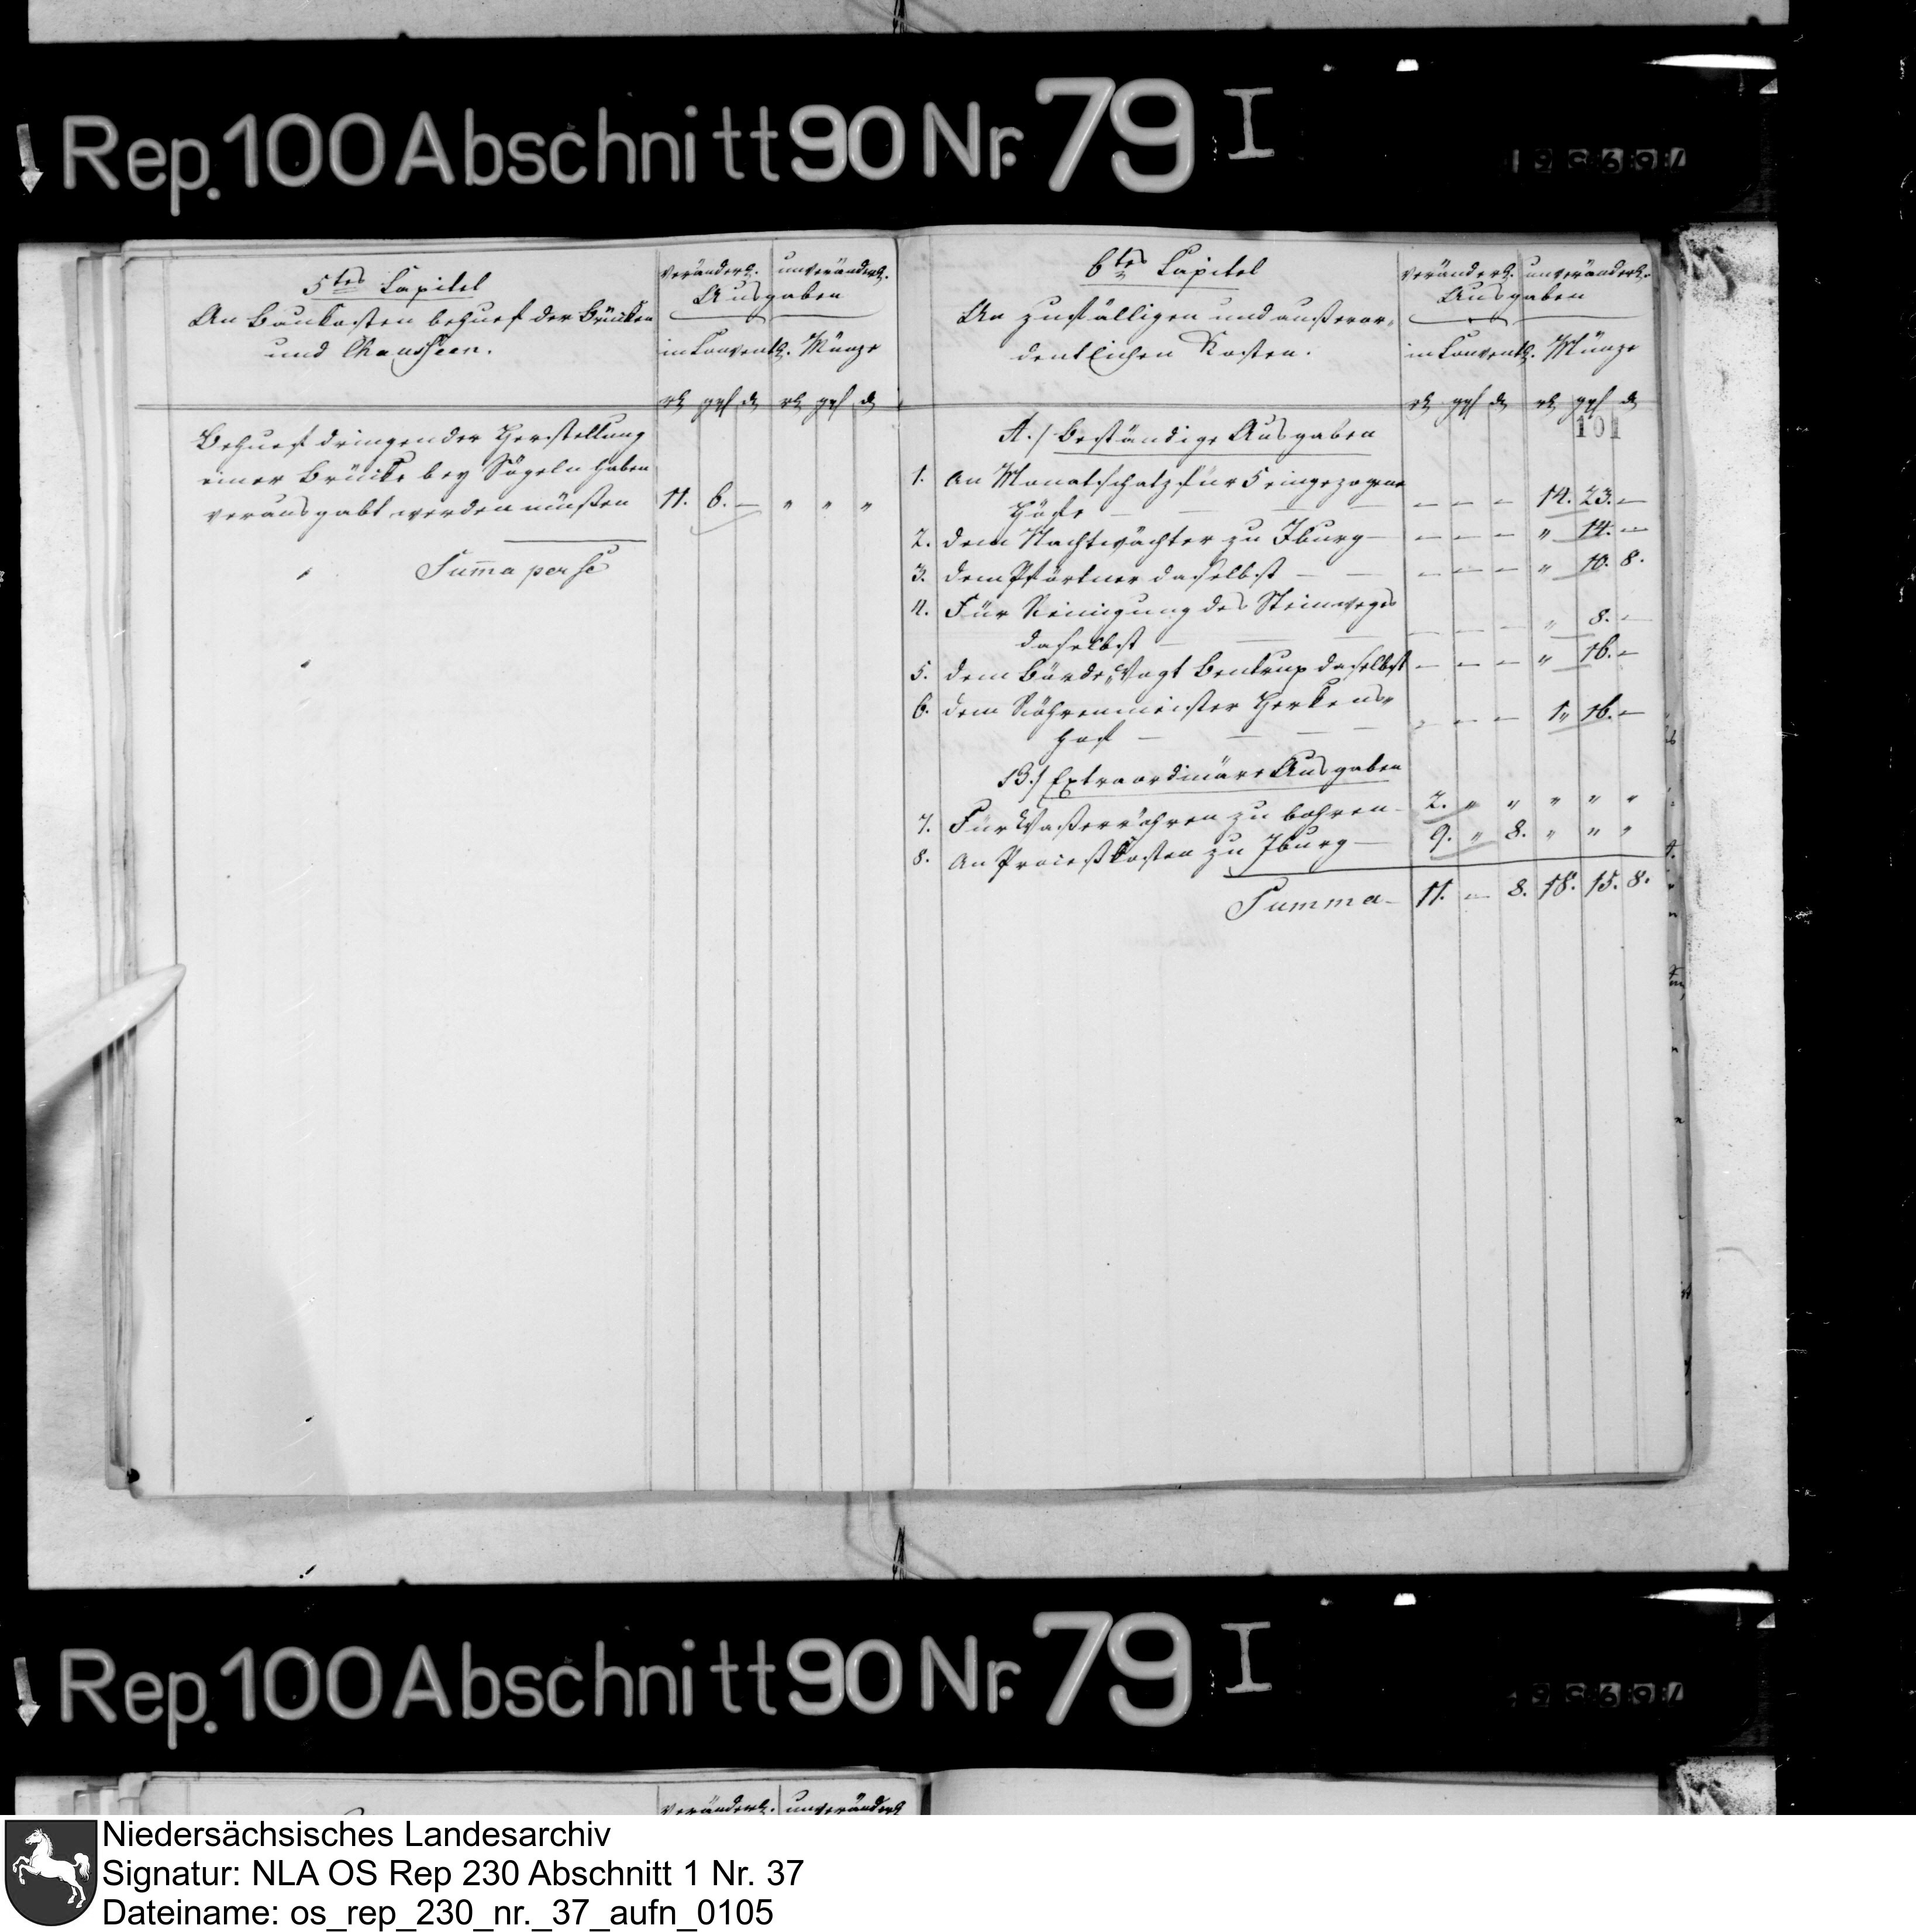 Rep. 100 Abschnitt 90 Nr. 79 I
5tes Capitel
An Baukosten behuef der Brücken
und Chausseen.
veränderl. unveränderl.
Ausgaben
in Convent. Münze
rt ggl d rt ggl d
Behuef dringender Herstellung
einer Brücke bey Sögeln haben
verausgabt werden müßen 11. 6. — " " "
Summa per se
6tes Capitel
An zufälligen und außeror-
dentlichen Kosten.
veränderl. unveränderl.
Ausgaben
in Convent. Münze
rt ggl d rt ggl d
101
A./ Beständige Ausgaben
1. An Monatschatz für 5 eingezogene
Höfe — — — — — — — 14. 23. —
2. dem Nachtwächter zu Iburg — — — — " 14. —
3. dem Pförtner daselbst — — — — — " 10. 8.
4. Für Reinigung des Steinweges
daselbst — — — — — — " 8. —
5. dem Bürde-Vogt Bentrup daselbst — — — " 16. —
6. dem Röhrenmeister Herkens-
hof — — — — — — — 1" 16. —
B./ Extraordinäre Ausgaben
7. Für Waßerröhren zu bohren — 2. " " " " "
8. An Proceßkosten zu Iburg — 9. " 8. " " "
Summa — 11. — 8. 18. 15. 8.
Rep. 100 Abschnitt 90 Nr. 79 I
veränderl. unveränderl
Niedersächsisches Landesarchiv
Signatur: NLA OS Rep 230 Abschnitt 1 Nr. 37
Dateiname: os_rep_230_nr._37_aufn_0105